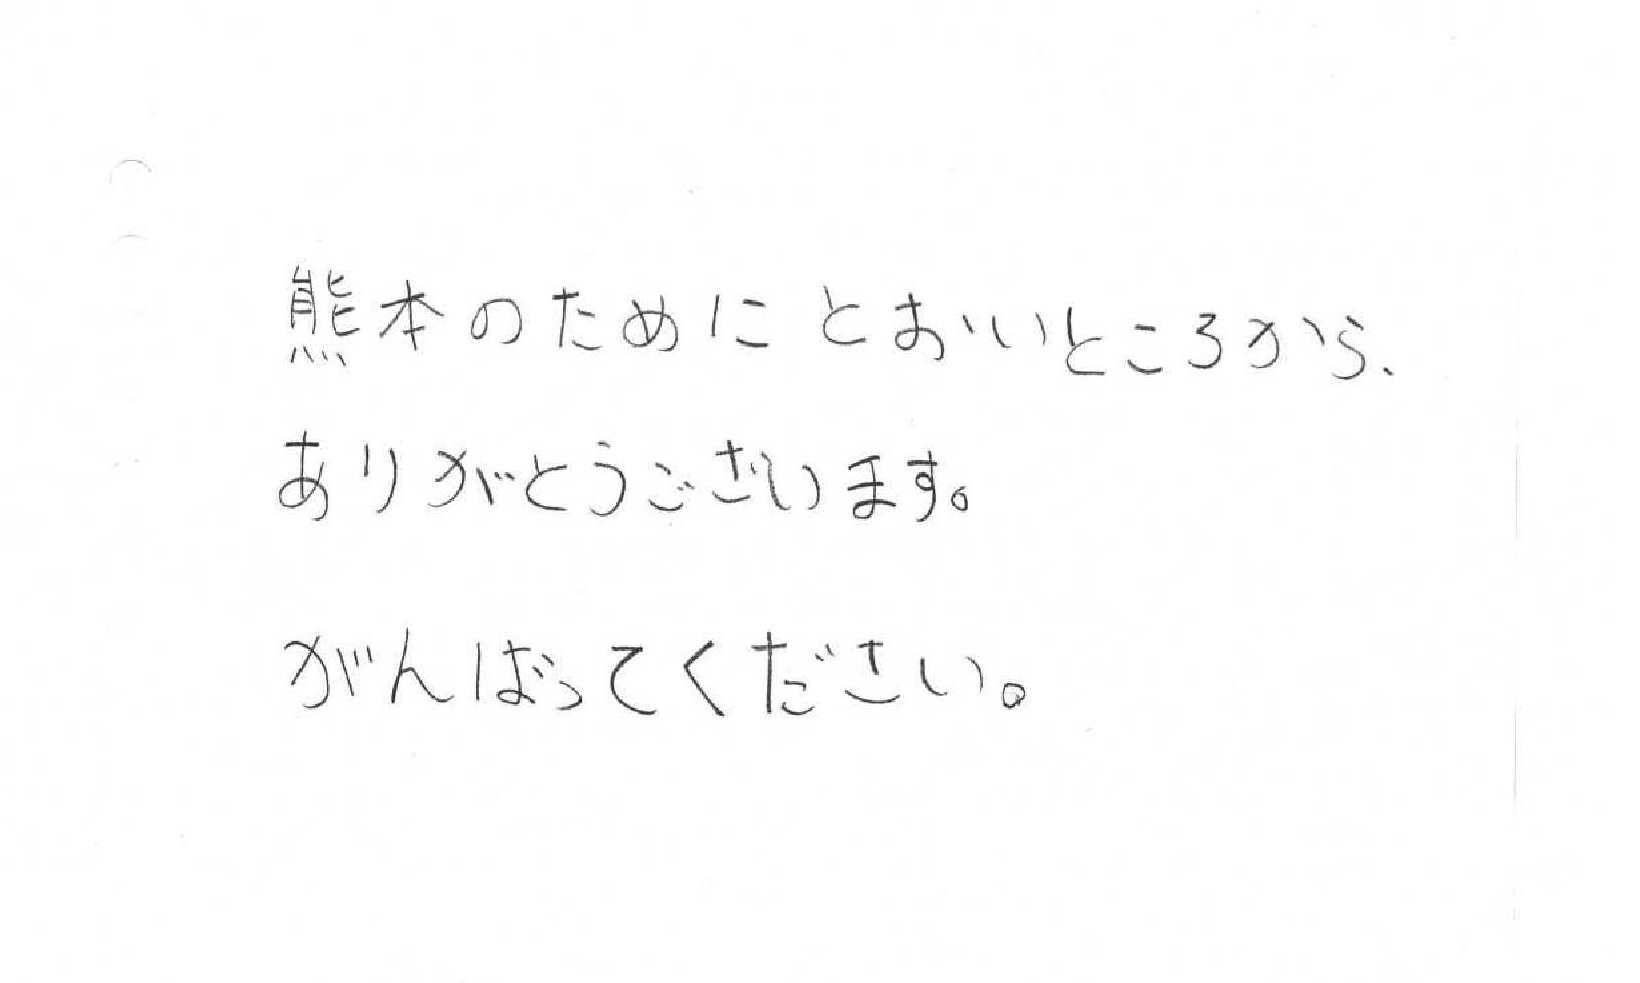 熊本のために とおいところから、
ありがとうございます。
がんばってください。